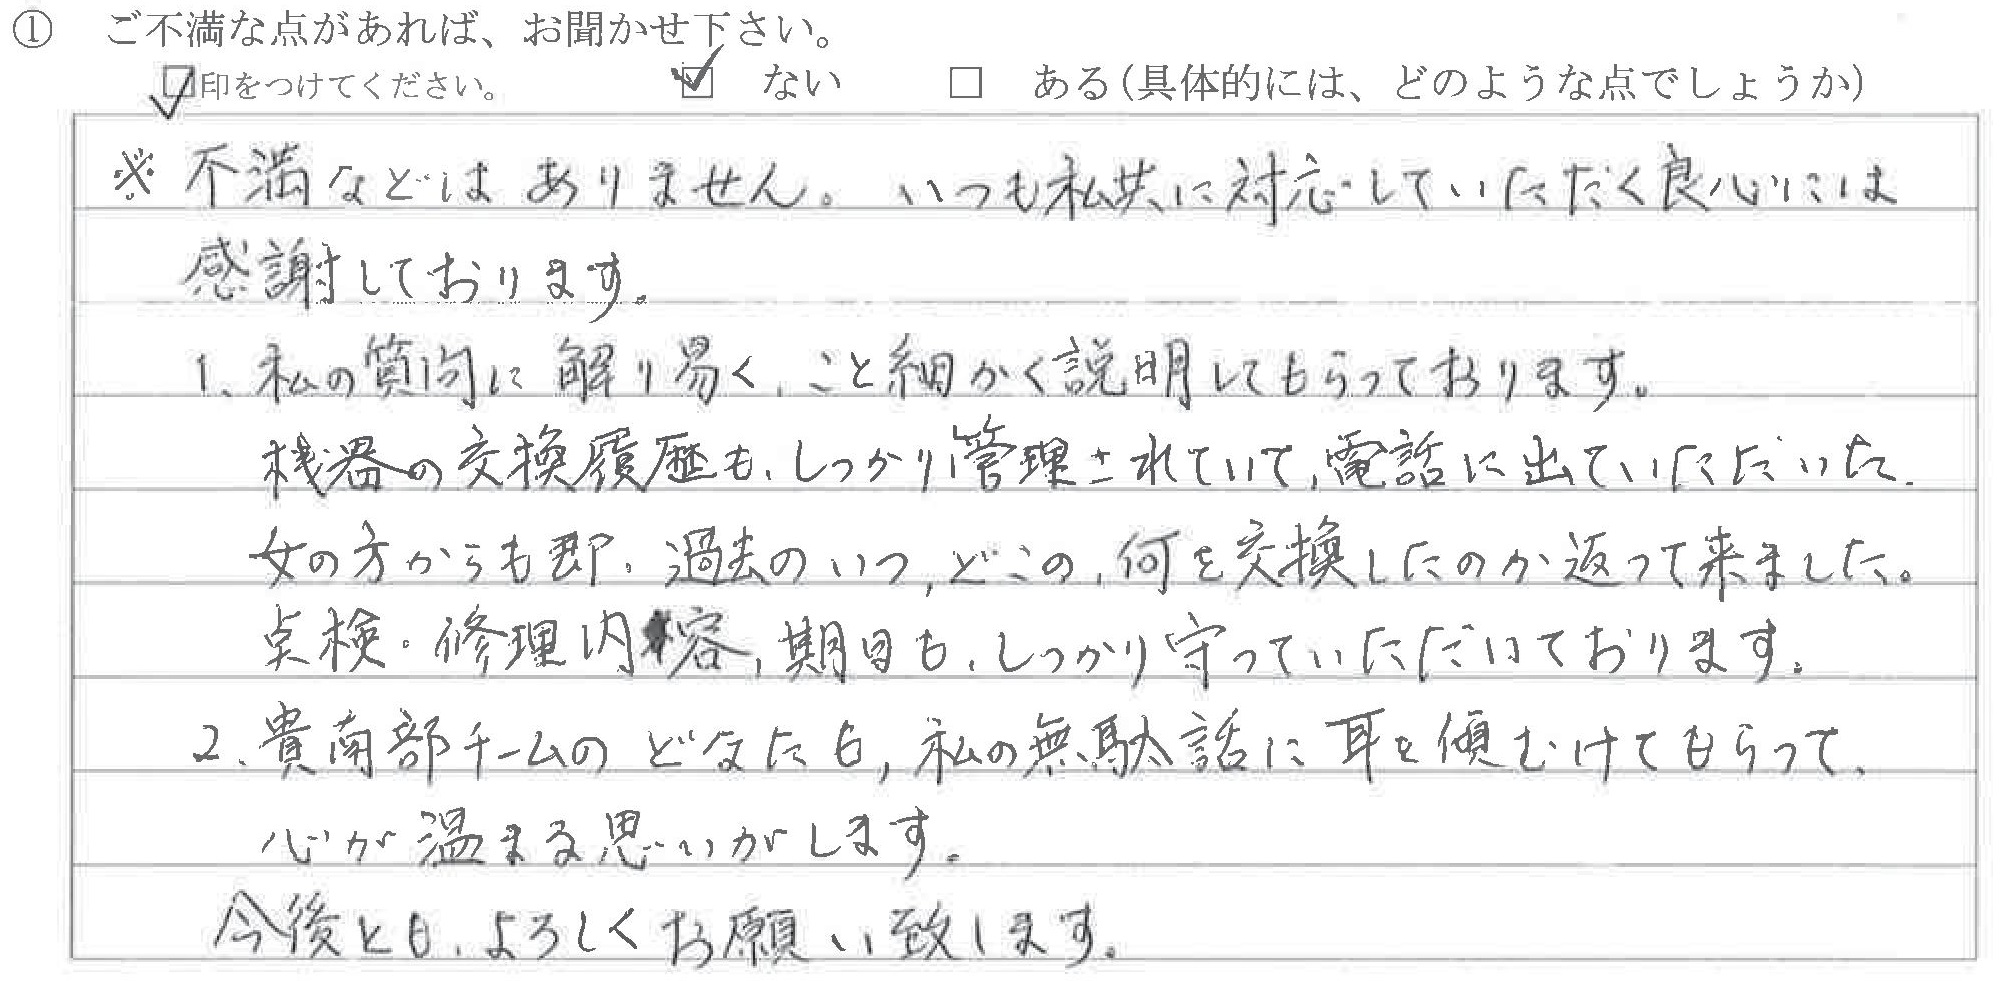 ① ご不満な点があれば、お聞かせ下さい。
☑印をつけてください。 ☑ ない □ ある(具体的には、どのような点でしょうか)
※ 不満などはありません。いつも私共に対応していただく良心には
感謝しております。
1、私の質問に解り易く、こと細かく説明してもらっております。
機器の交換履歴も、しっかり管理されていて、電話に出ていただいた、
女の方からも即、過去のいつ、どこの、何を交換したのか返って来ました。
点検・修理内容、期日も、しっかり守っていただいております。
2、貴南部チームのどなたも、私の無駄話に耳を傾むけてもらって、
心が温まる思いがします。
今後とも、よろしくお願い致します。